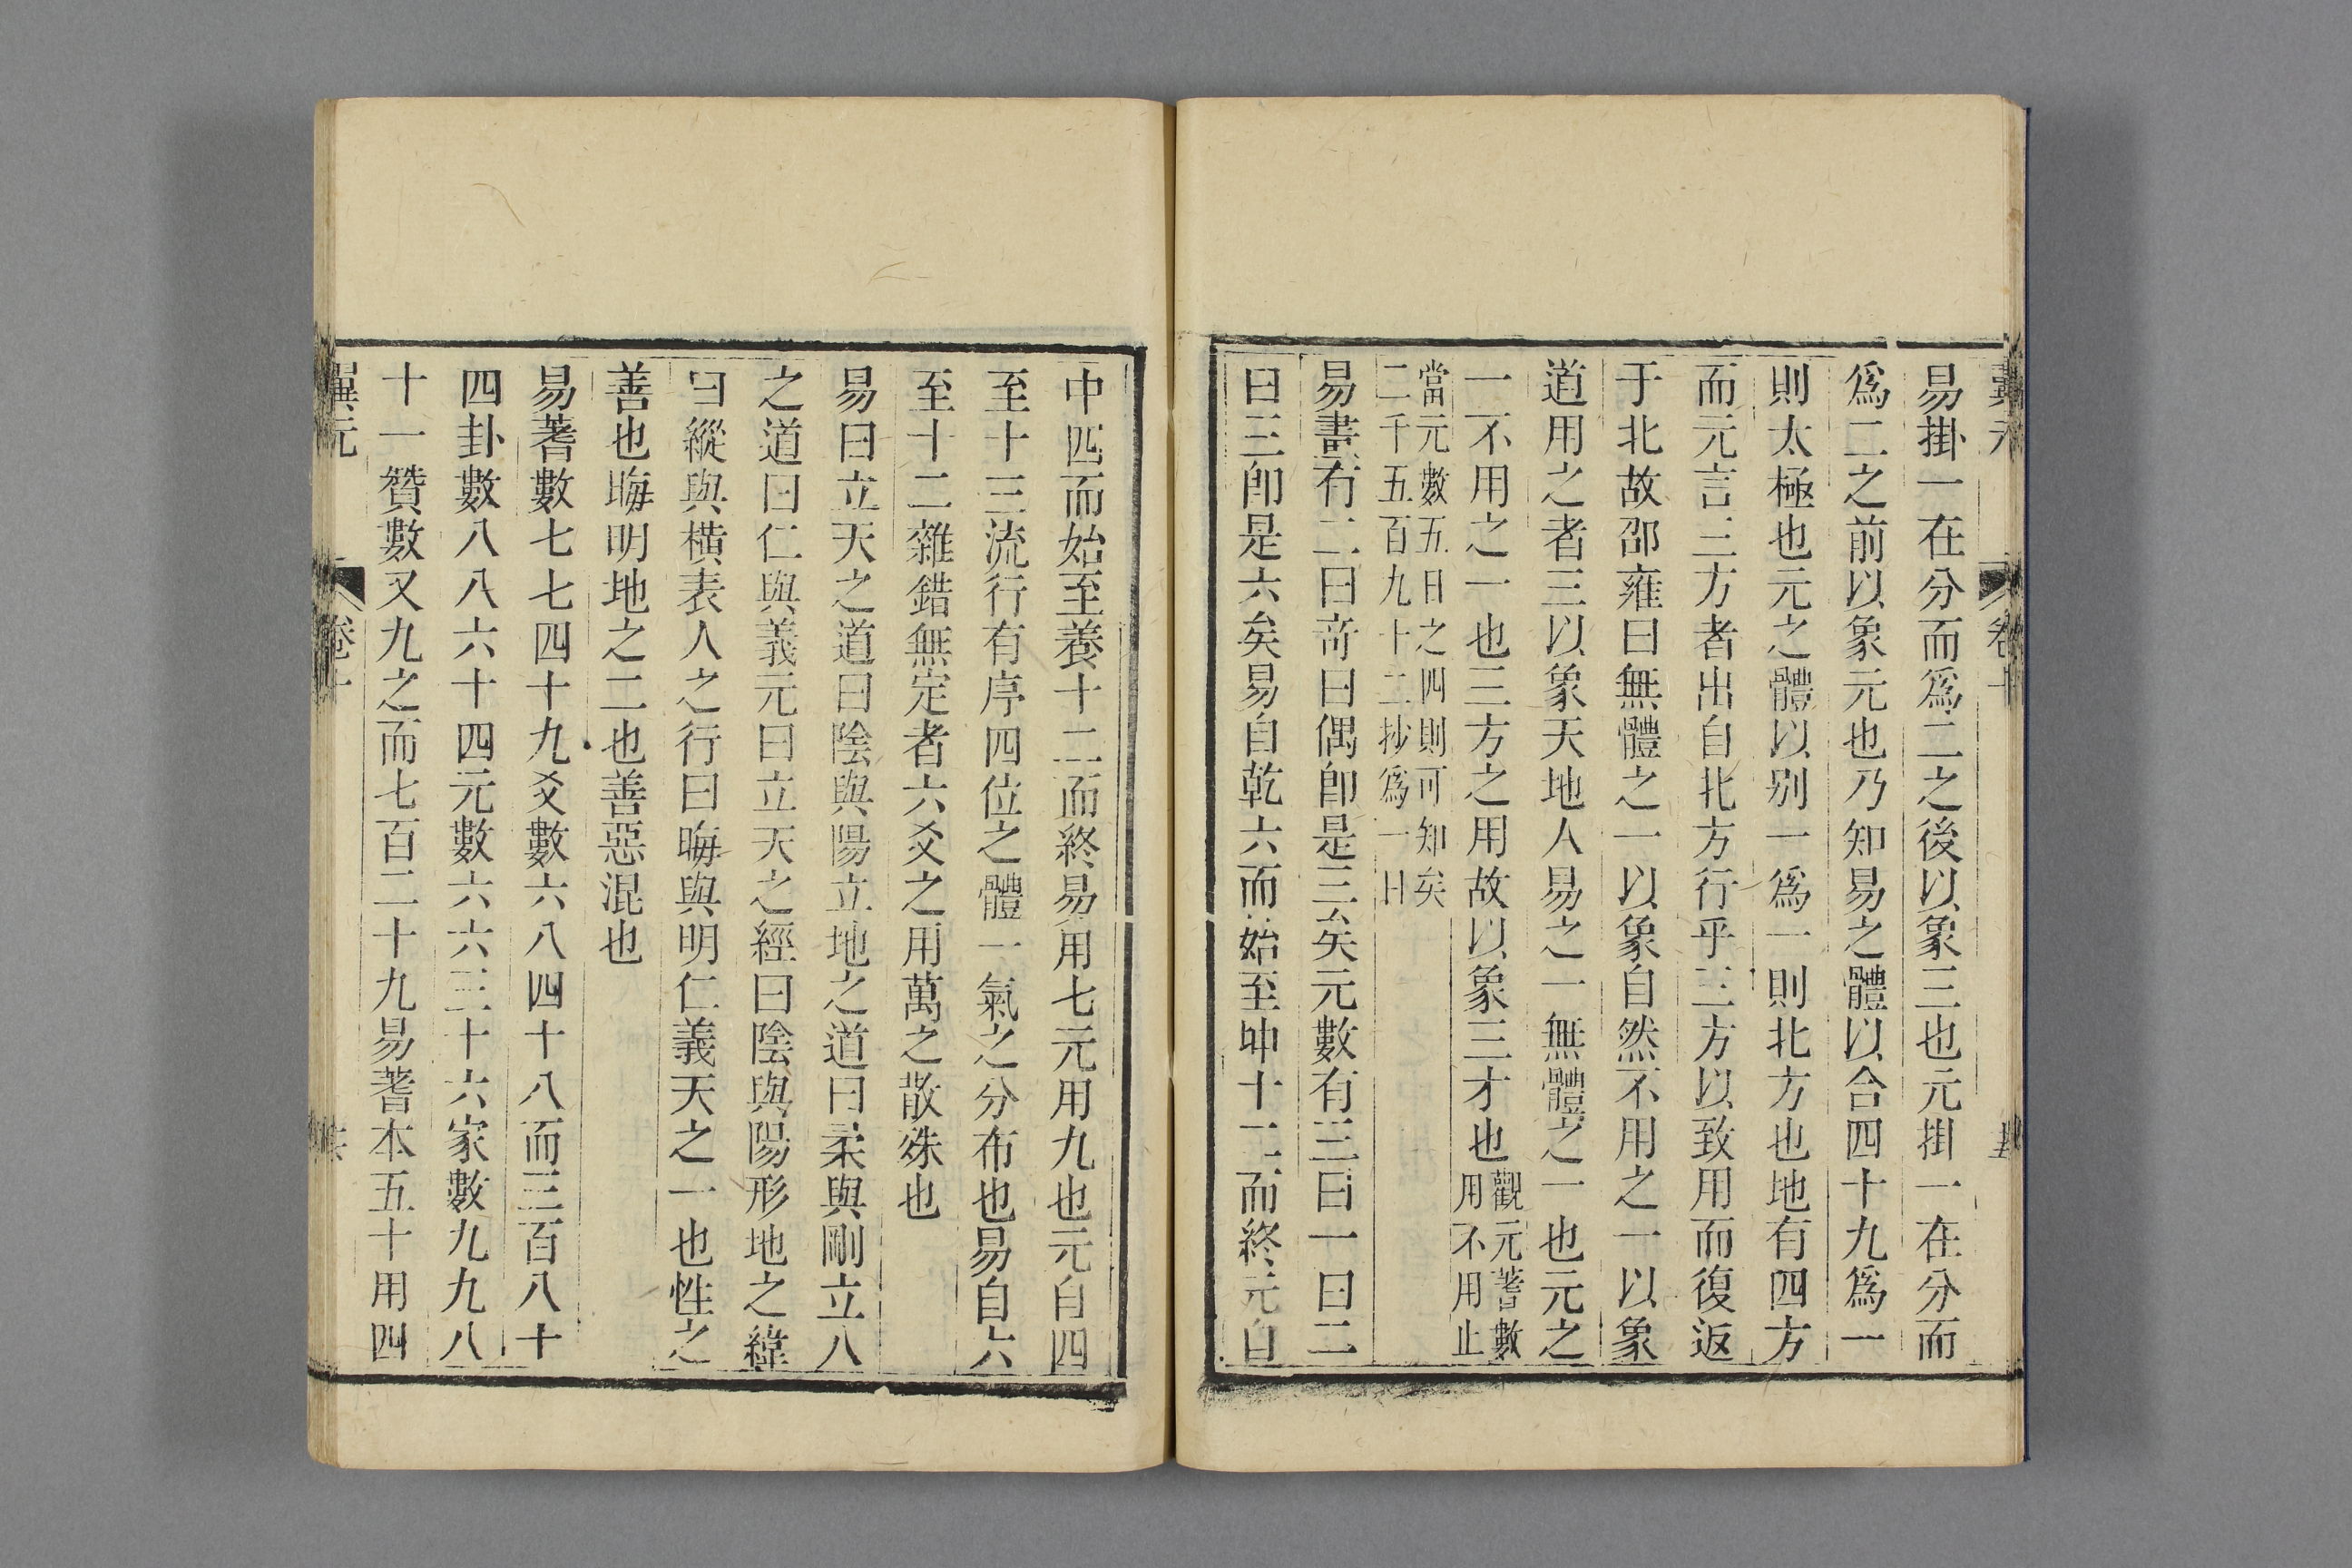 易掛一在分而爲二之後以象三也元掛一在分而
爲二之前以象元也乃知易之體以合四十九爲一
則太極也元之體以别一爲一則北方也地有四方
而元言三方者出自北方行乎三方以致用而復返
于北故邵雍曰無體之一以象自然不用之一以象
道用之者三以象天地人易之一無體之一也元之
一不用之一也三方之用故以象三才也觀元蓍數
用不用止
當元數五日之四則可知矣
二千五百九十二抄爲一日
易畫有二曰奇曰偶卽是三矣元數有三曰一曰二
曰三卽是六矣易自乾六而始至坤十二而終元自
中四而始至養十二而終易用七元用九也元自四
至十三流行有序四位之體一氣之分布也易自六
至十二雜錯無定者六爻之用萬之散殊也
易曰立天之道曰陰與陽立地之道曰柔與剛立人
之道曰仁與義元曰立天之經曰陰與陽形地之緯
曰縱與橫表人之行曰晦與明仁義天之一也性之
善也晦明地之二也善惡混也
易蓍數七七四十九爻數六八四十八而三百八十
四卦數八八六十四元數六六三十六家數九九八
十一贊數又九之而七百二十九易蓍本五十用四
元
卷十